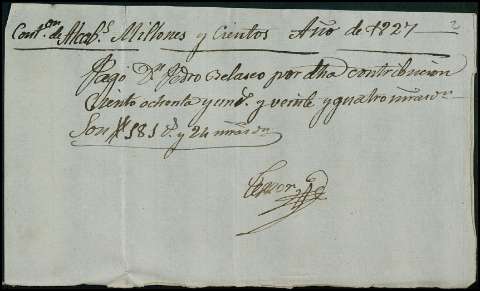 Conton de Alcabs Millones y Cientos Año de 1827 2
Pagó Dn Pedro Velasco por dha contribucion
Ciento ochenta y un y veinte y quatro mrs von
Son 181 y 24 mrs von